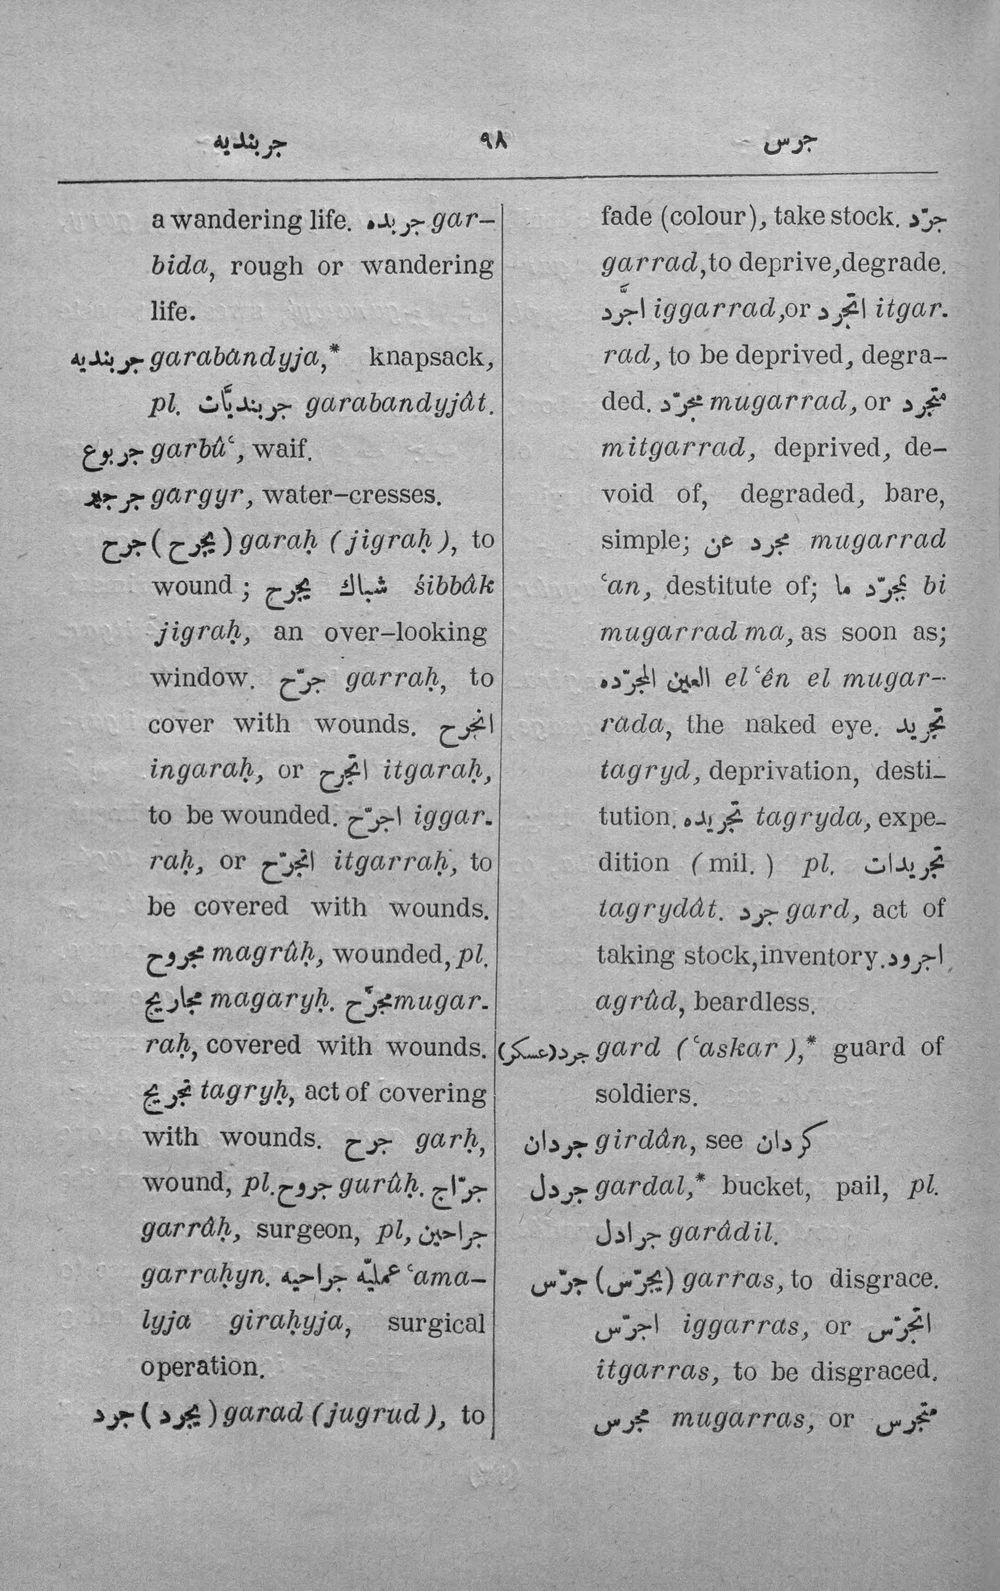 جربنديه ٩٨ جرس
a wandering life. جربده gar-
bida, rough or wandering
life.
جربنديه garabandyja,* knapsack,
pl. جربنديَّات garabandyjât.
جربوع garbûʿ, waif.
جرجير gargyr, water-cresses.
جرح (يجرح) garaḥ (jigraḥ), to
wound ; شباك يجرح śibbâk
jigraḥ, an over-looking
window. جرّح garraḥ, to
cover with wounds. انجرح
ingaraḥ, or اتجرح itgaraḥ,
to be wounded. اجرّح iggar-
raḥ, or اتجرّح itgarraḥ, to
be covered with wounds.
مجروح magrûḥ, wounded, pl.
مجاريح magaryḥ. مجرّح mugar-
raḥ, covered with wounds.
تجريح tagryḥ, act of covering
with wounds. جرح garḥ,
wound, pl. جروح gurûḥ. جرّاح
garrâḥ, surgeon, pl, جراحين
garraḥyn. عمليّه جراحيه ʿama-
lyja giraḥyja, surgical
operation.
جرد (يجرد) garad (jugrud), to
fade (colour), take stock. جرّد
garrad, to deprive, degrade.
اجرَّد iggarrad, or اتجرد itgar-
rad, to be deprived, degra-
ded. مجرّد mugarrad, or متجرد
mitgarrad, deprived, de-
void of, degraded, bare,
simple; مجرد عن mugarrad
ʿan, destitute of; بمجرّد ما bi
mugarrad ma, as soon as;
العين المجرّده el ʿên el mugar-
rada, the naked eye. تجريد
tagryd, deprivation, desti-
tution. تجريده tagryda, expe-
dition (mil.) pl. تجريدات
tagrydât. جرد gard, act of
taking stock, inventory. اجرود
agrûd, beardless.
جرد (عسكر) gard (ʿaskar),* guard of
soldiers.
جردان girdân, see كردان
جردل gardal,* bucket, pail, pl.
جرادل garâdil.
جرّس (يجرّس) garras, to disgrace.
اجرّس iggarras, or اتجرّس
itgarras, to be disgraced.
مجرس mugarras, or متجرس